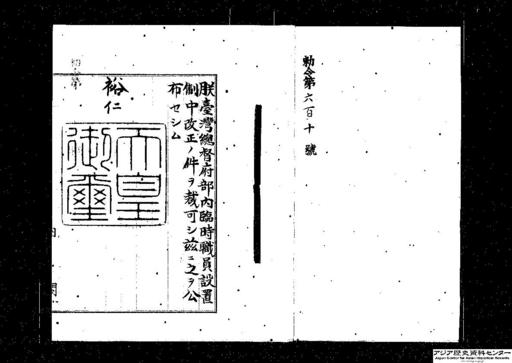 勅令第六百十號
朕臺灣總督府部內臨時職員設置
制中改正ノ件ヲ裁可シ茲ニ之ヲ公
布セシム
裕仁
天皇御璽
勅令第
アジア歴史資料センター
Japan Center for Asian Historical Records